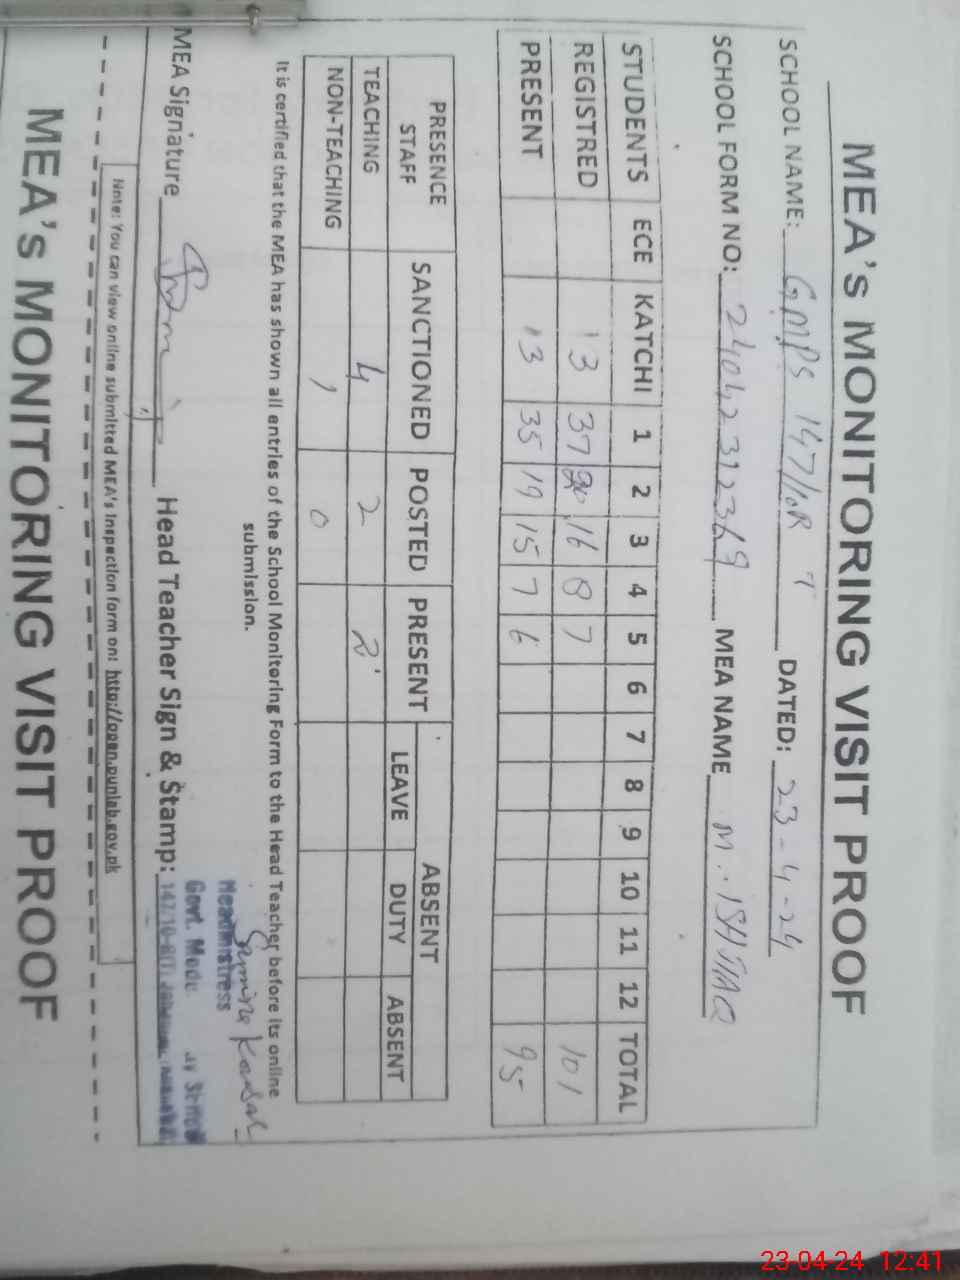 MEA's MONITORING VISIT PROOF
SCHOOL NAME: GMPS 147/10R T DATED: 23-4-24
SCHOOL FORM NO: 24042312369 MEA NAME M. ISHTIAQ
STUDENTS ECE KATCHI 1 2 3 4 5 6 7 8 9 10 11 12 TOTAL
REGISTRED 13 37 20 16 8 7 101
PRESENT 13 35 19 15 7 6 95
PRESENCE STAFF SANCTIONED POSTED PRESENT ABSENT
LEAVE DUTY ABSENT
TEACHING 4 2 2
NON-TEACHING 1 0
It is certified that the MEA has shown all entries of the School Monitoring Form to the Head Teacher before its online
submission.
MEA Signature Head Teacher Sign & Stamp:
Headmistress
Govt.
Note: You can view online submitted MEA's Inspection form on: http://open.punjab.gov.pk
MEA's MONITORING VISIT PROOF
23-04-24 12:41